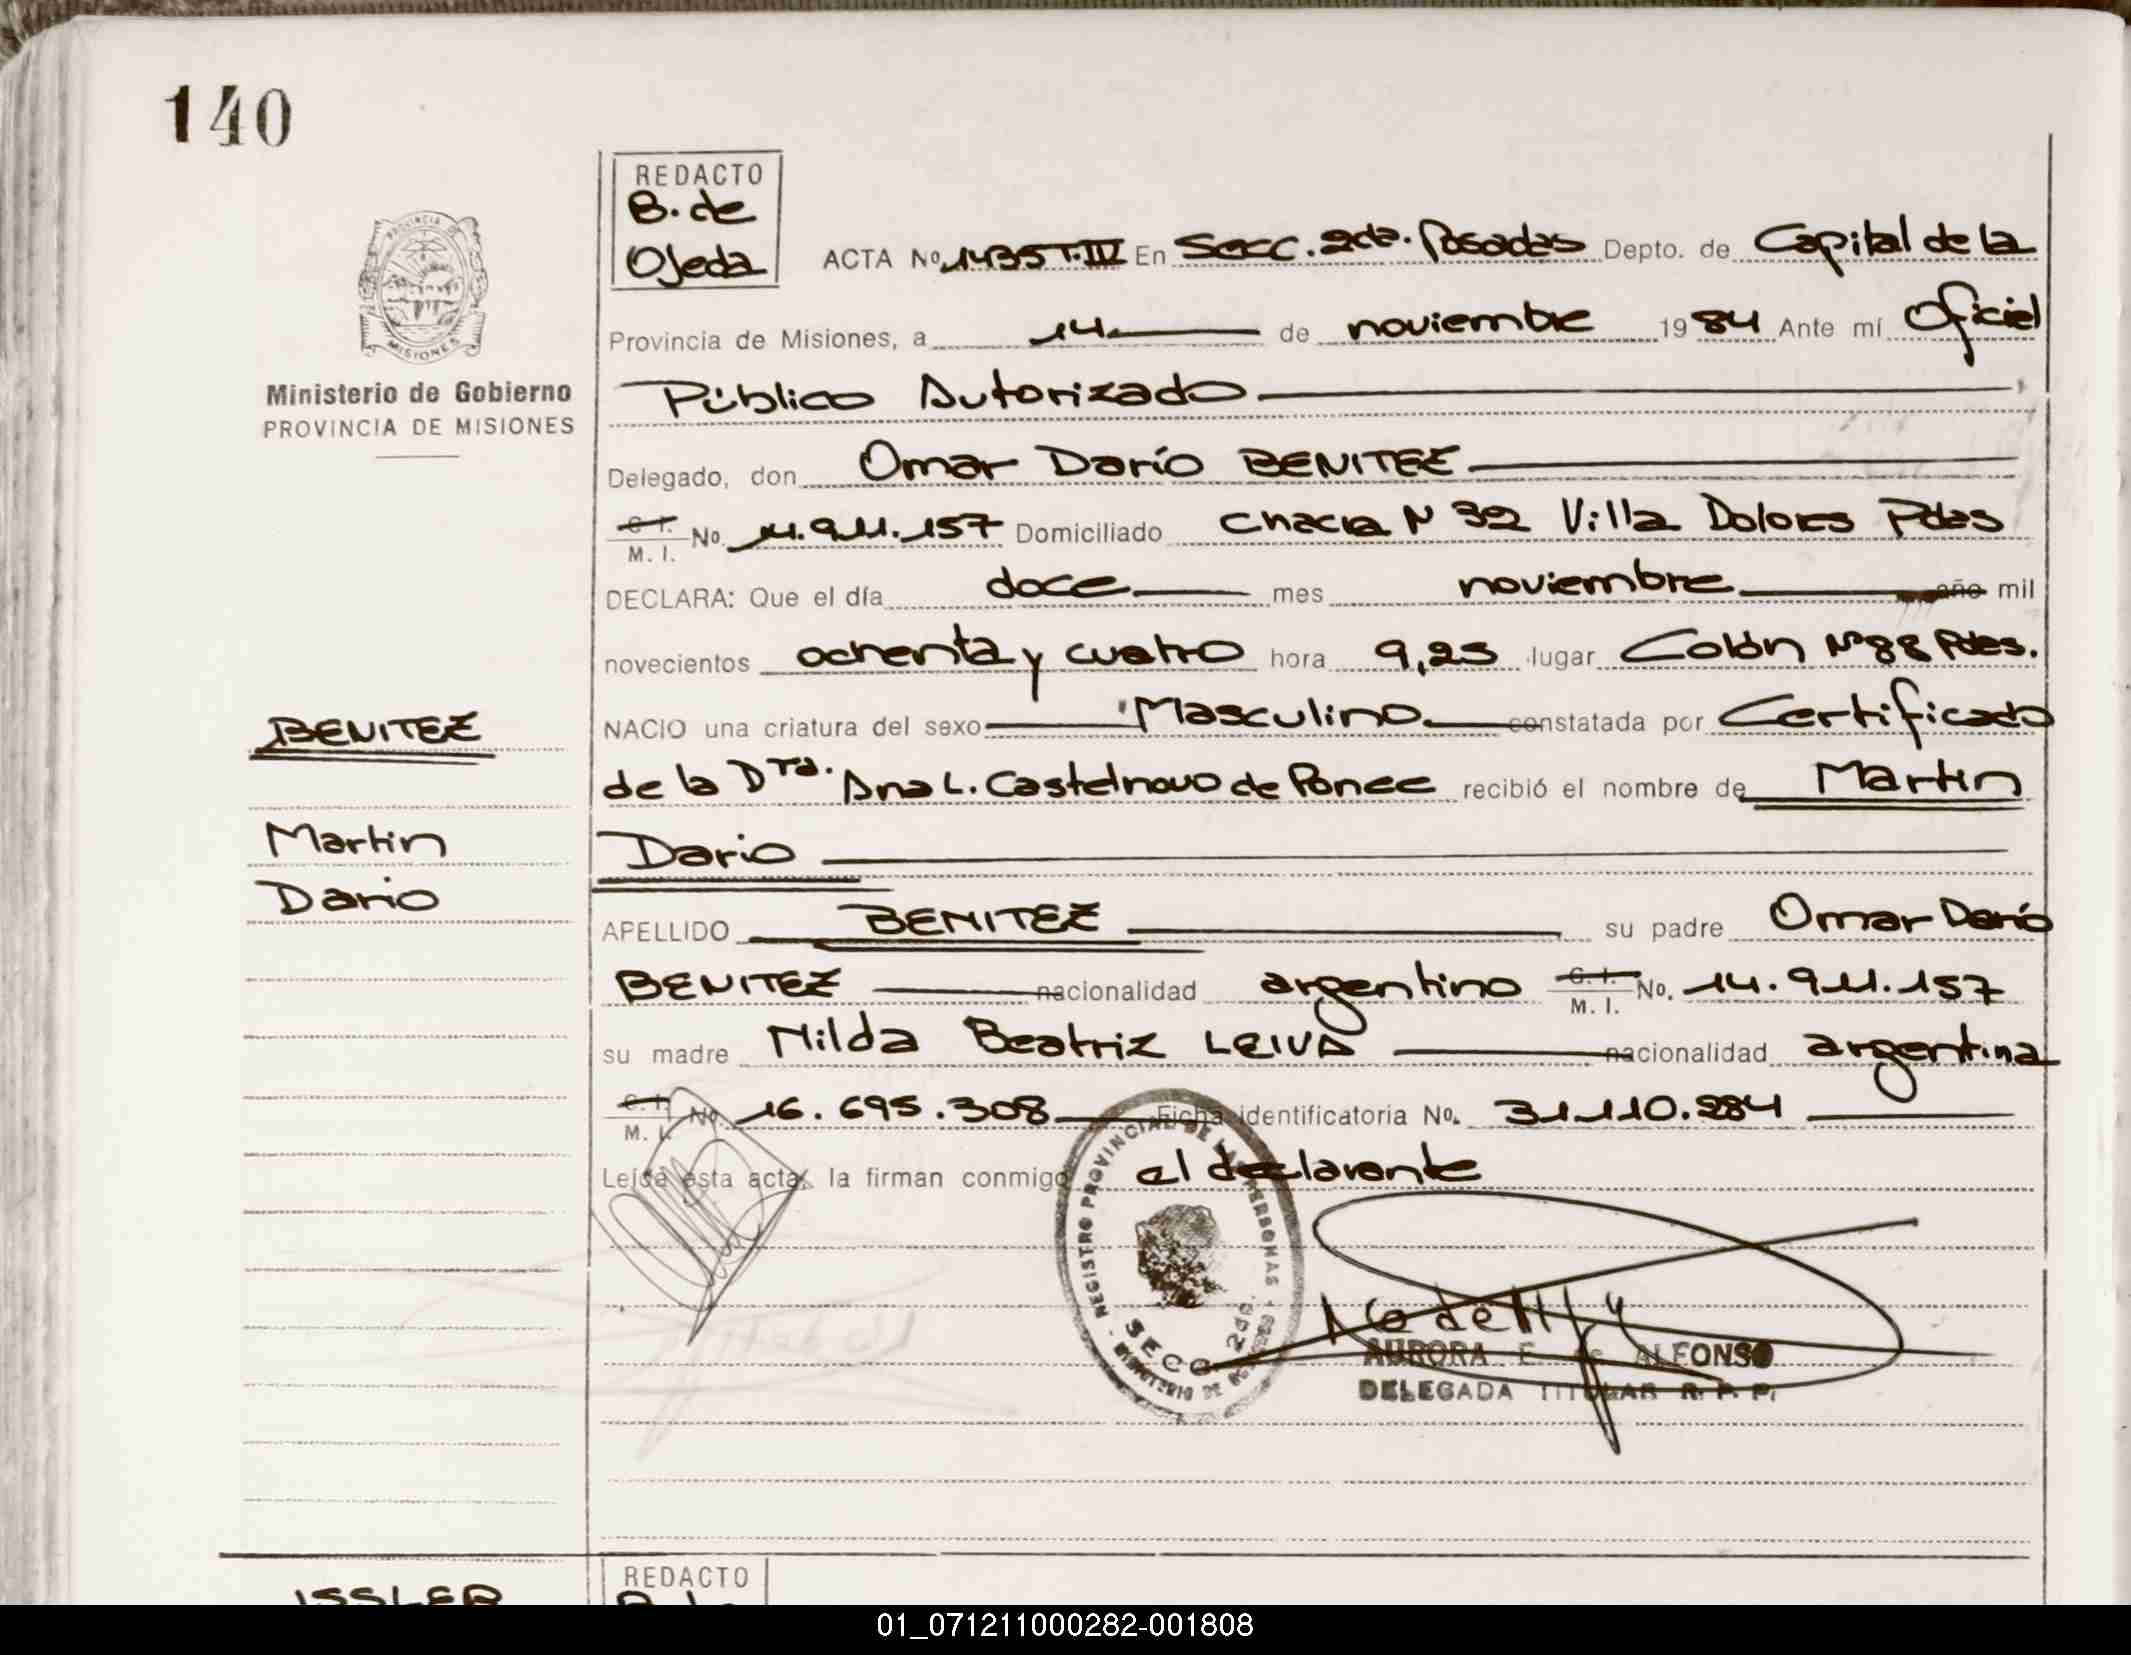 140
REDACTO
B. de
Ojeda
ACTA No. 1435 T. III En Secc. 2da. Posadas Depto. de Capital de la
PROVINCIA DE
MISIONES
Provincia de Misiones, a 14 de noviembre 1984 Ante mí Oficial
Ministerio de Gobierno
PROVINCIA DE MISIONES
Público Autorizado
Delegado, don Omar Darío BENITEZ
C. I.
M. I. No. 14.911.157 Domiciliado Chacra N 32 Villa Dolores Pdas
DECLARA: Que el día doce mes noviembre año mil
novecientos ochenta y cuatro hora 9,25 lugar Colón Nº 88 Pdas.
NACIO una criatura del sexo Masculino constatada por Certificado
BENITEZ
de la Dra. Ana L. Castelnovo de Ponce recibió el nombre de Martin
Martin
Dario
Dario
APELLIDO BENITEZ su padre Omar Darío
BENITEZ nacionalidad argentino C. I. M. I. No. 14.911.157
su madre Nilda Beatriz LEIVA nacionalidad argentina
C. I.
M. I. No. 16.695.308 Ficha identificatoria No. 31.110.284
Leída esta acta, la firman conmigo el declarante
REGISTRO PROVINCIAL DE LAS PERSONAS
SECC. 2da.
MINISTERIO DE
AURORA E. de ALFONSO
DELEGADA TITULAR R. P. P.
ISSLER
REDACTO
01_071211000282-001808